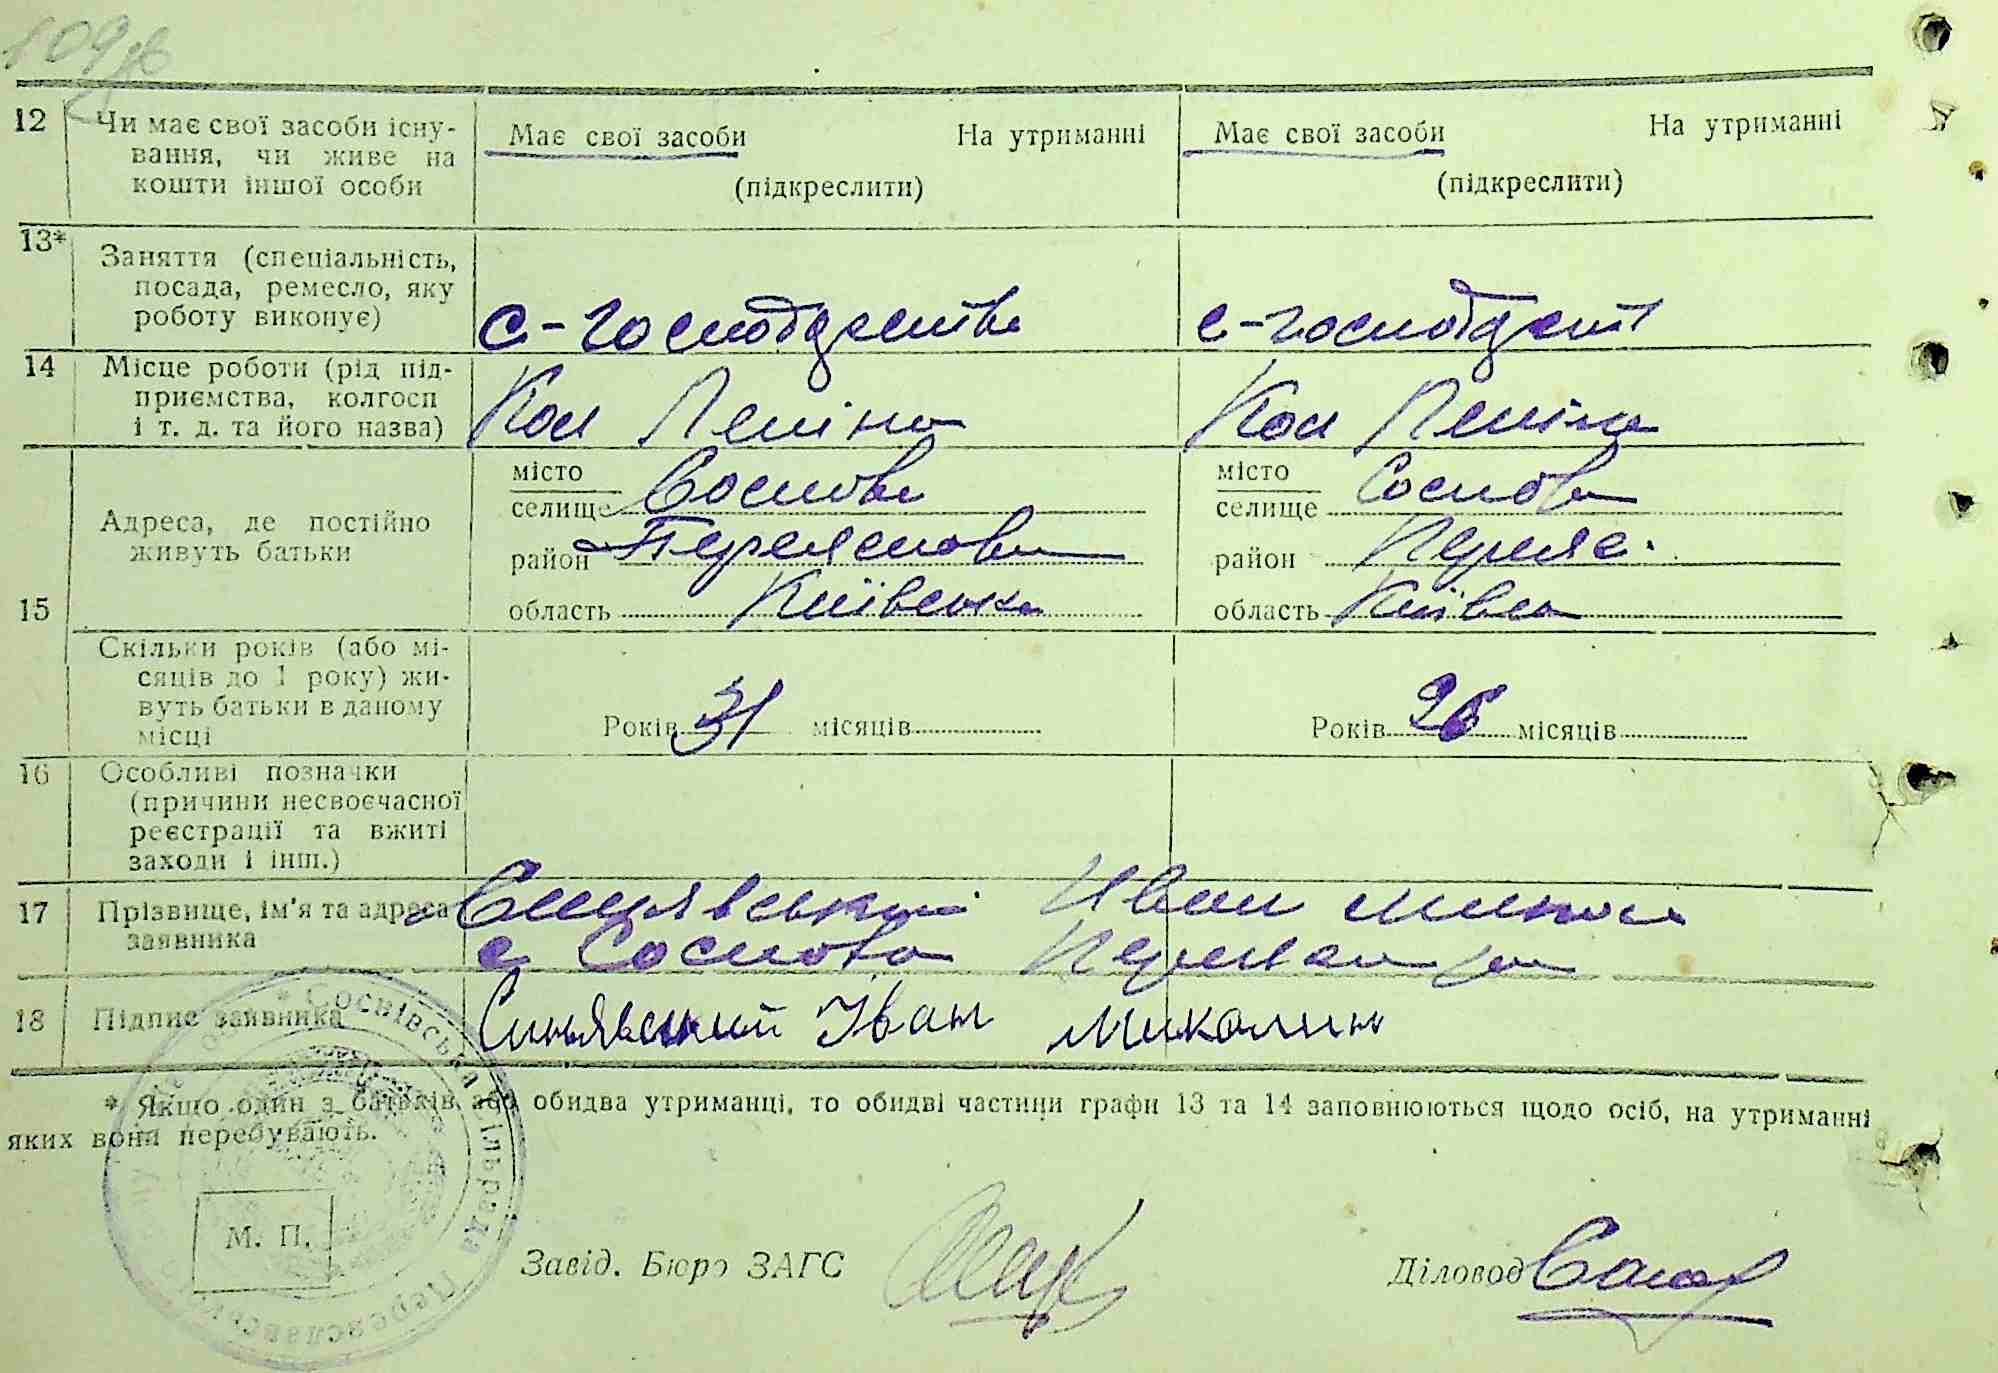 109
12 Чи має свої засоби існу-
вання, чи живе на
кошти іншої особи
Має свої засоби На утриманні
(підкреслити)
Має свої засоби На утриманні
(підкреслити)
13* Заняття (спеціальність,
посада, ремесло, яку
роботу виконує)
с-господарстві
с-господарст
14 Місце роботи (рід під-
приємства, колгосп
і т. д. та його назва)
Кол Леніна
Кол Леніна
15
Адреса, де постійно
живуть батьки
місто
селище Соснова
район Переяславськ
область Київська
місто
селище Соснова
район Переяс.
область Київсь
Скільки років (або мі-
сяців до 1 року) жи-
вуть батьки в даному
місці
Років 31 місяців
Років 26 місяців
16 Особливі позначки
(причини несвоєчасної
реєстрації та вжиті
заходи і інш.)
17 Прізвище, ім'я та адреса
заявника
Синявський Иван Микол
с Соснова Переяслав
18 Підпис заявника
Синявский Іван Миколин
* Якщо один з батьків або обидва утриманці, то обидві частини графи 13 та 14 заповнюються щодо осіб, на утриманні
яких вони перебувають.
* Соснівська сільрада Переяславського
М. П.
Завід. Бюро ЗАГС
Діловод